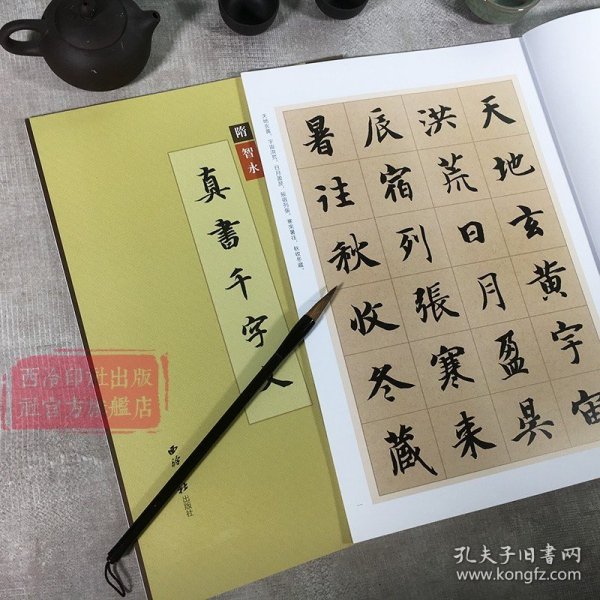 隋
智永
真書千字文
西泠印社出版社
天地玄黄，宇宙洪荒。日月盈昃，辰宿列張。寒来暑往，秋收冬藏。
天地玄黄宇宙
洪荒日月盈昃
辰宿列張寒来
暑往秋收冬藏
西泠印社出版
社官方旗艦店
孔夫子旧书网
www.kongfz.com